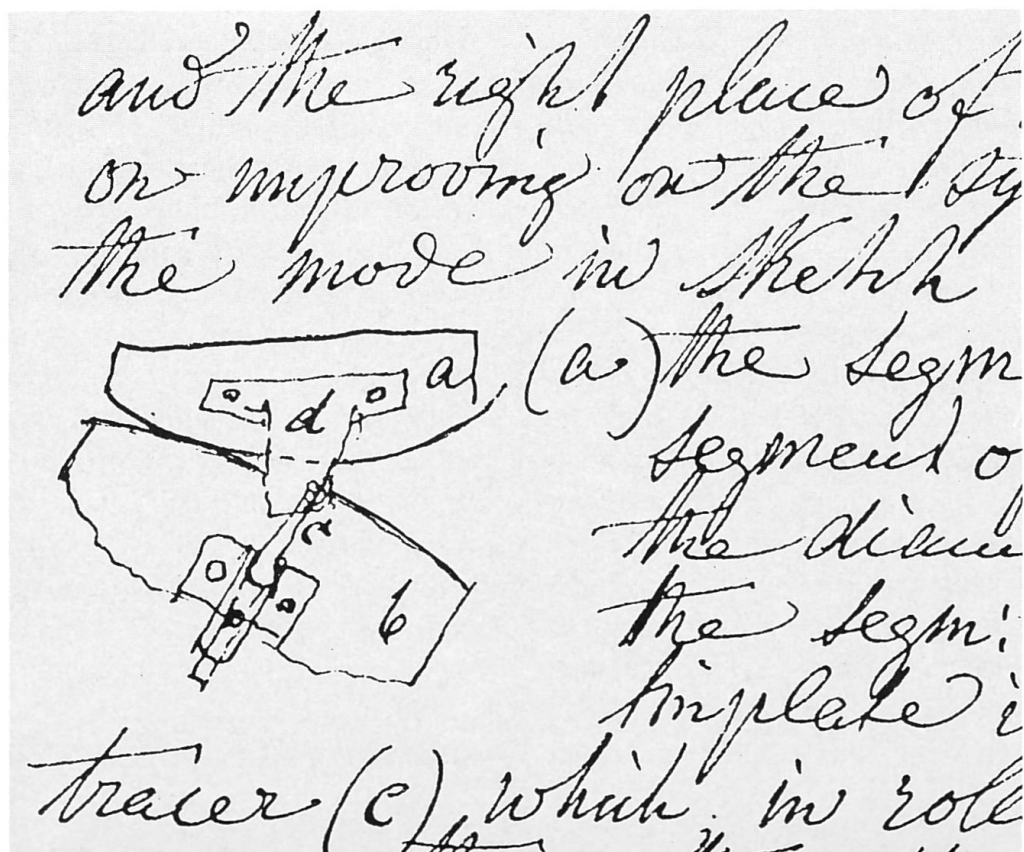 and the right place of
on improving on the sy
the mode in sketch
a (a) the segm
d segment o
the diam
c the segm:
b tinplate i
tracer (c) which in role